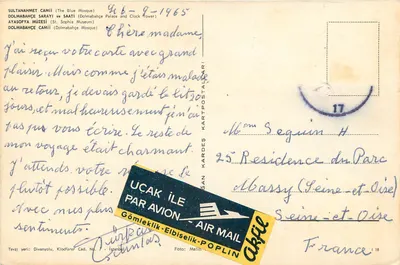 SULTANAHMET CAMİİ (The Blue Mosque)
DOLMABAHÇE SARAYI ve SAATİ (Dolmabahçe Palace and Clock Tower)
AYASOFYA MÜZESİ (St. Sophia Museum)
DOLMABAHÇE CAMİİ (Dolmabahçe Mosque)
9-1965
Chère madame,
j'ai reçu votre carte avec grand
plaisir. Mais comme j'étais malade
au retour, je devais gardé le lit 20
jours, et malheureusement j'ai n'ai
pas pu vous écrire. Le reste de
mon voyage était charmant.
J'attends votre
plutôt possible.
avec mes plus
sentiments.
KARDEŞ KARTPOSTALLARI
17
Mme Seguin H
25 Residence du Parc
Massy (Seine-et-Oise)
Seine-et-Oise
France
UÇAK İLE
PAR AVION
AIR MAIL
Gömleklik-Elbiselik-POPLİN
Akfil